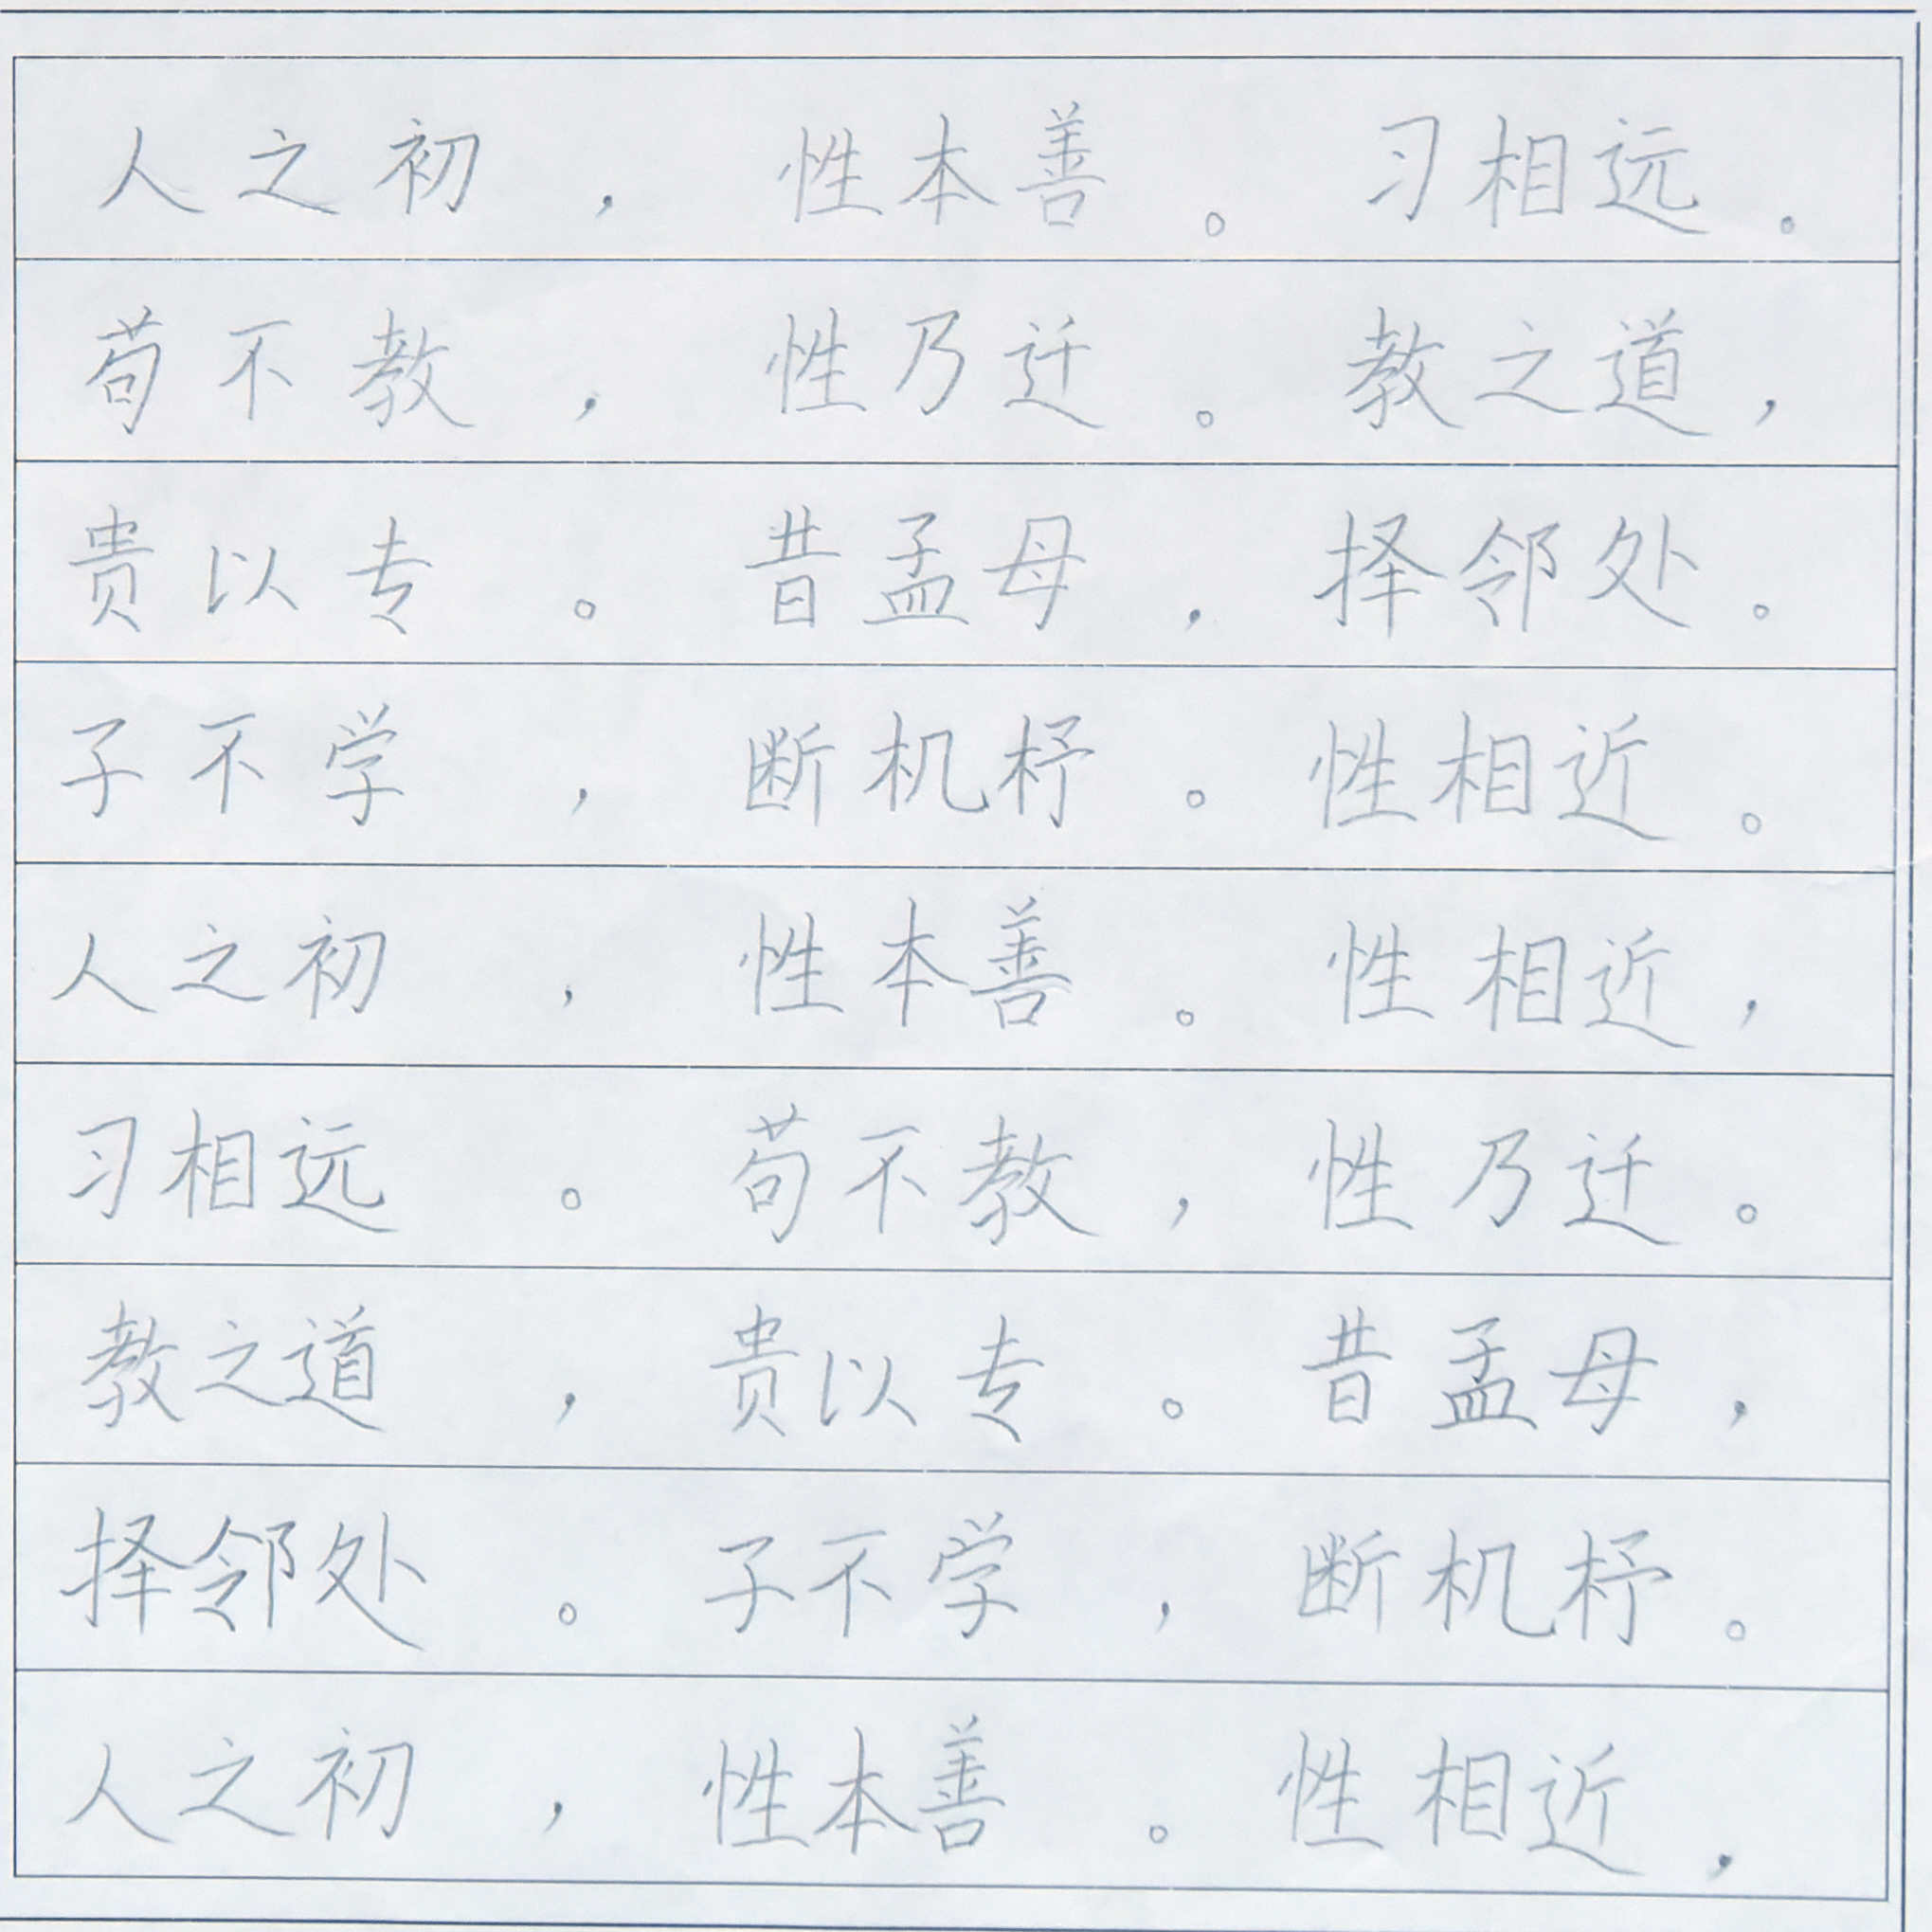 人之初，性本善。习相远。
苟不教，性乃迁。教之道，
贵以专。昔孟母，择邻处。
子不学，断机杼。性相近。
人之初，性本善。性相近，
习相远。苟不教，性乃迁。
教之道，贵以专。昔孟母，
择邻处。子不学，断机杼。
人之初，性本善。性相近，